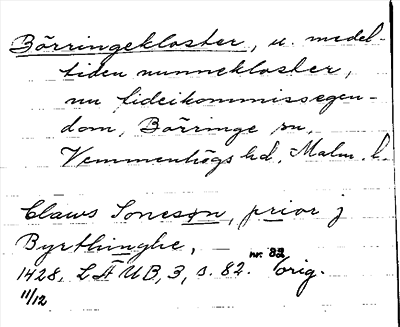 Börringekloster, u. medel-
tiden nunnekloster,
nu fideikommissegen-
dom, Börringe sn,
Vemmenhögs hd, Malm. l.
Claws Soneson, prior j
Byrthinghe,
1428. LÄUB, 3, s. 82. nr. 82 orig.
11/12